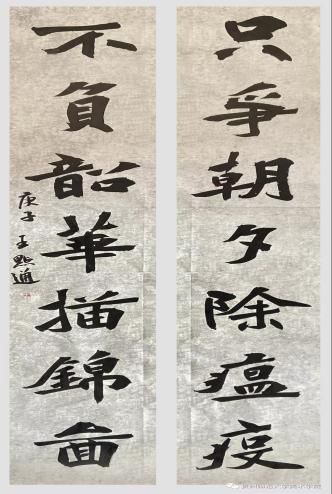 只爭朝夕除瘟疫
不負韶華描錦畵
庚子 王